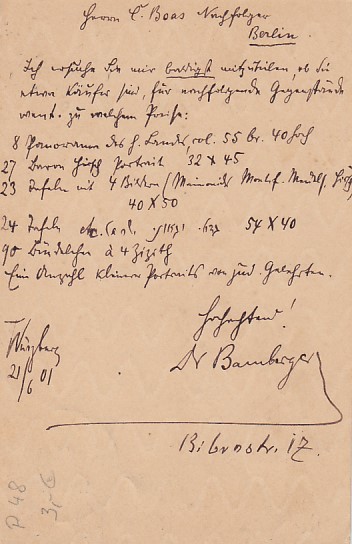 Herrn C. Boas Nachfolger
Berlin.
Ich ersuche Sie mir baldigst mitzuteilen, ob Sie
etwa Käufer sind für nachfolgende Gegenstände
event. zu welchem Preise:
8 Panoramen des h. Landes, col. 55 br. 40 hoch
27 Baron Hirsch Portrait 32 X 45
23 Tafeln mit 4 Bildern (Maimonids Montef. Mendels. Hirsch
40 X 50
24 Tafeln 54 X 40
90 Bündelchen à 4 Zizith
Ein Anzahl kleiner Portraits von jüd. Gelehrten.
Hochachtend!
Würzburg
21/6 01
Dr Bamberger
Bibrastr. 17.
P 48
3,- €